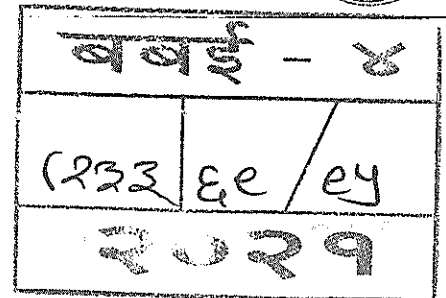 बबई - ४
८२३३ ६९ / ९५
२०२१